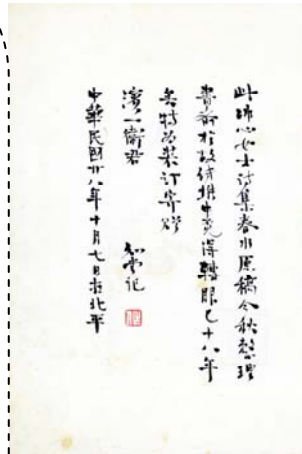 此冰心女士詩集春水原稿今秋整理
書齋於故紙堆中覓得轉眼已十八年
矣特為裝訂寄贈
濱一衛君
知堂記
中華民國廿八年十月七日於北平